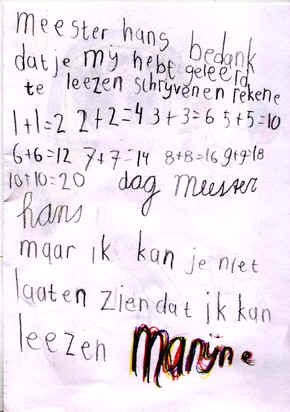 meester hans bedank
dat je mij hebt geleerd
te leezen schryvenen rekene
1+1=2 2+2=4 3+3=6 5+5=10
6+6=12 7+7=14 8+8=16 9+9=18
10+10=20 dag meester
hans
maar ik kan je niet
laaten zien dat ik kan
leezen Marijne